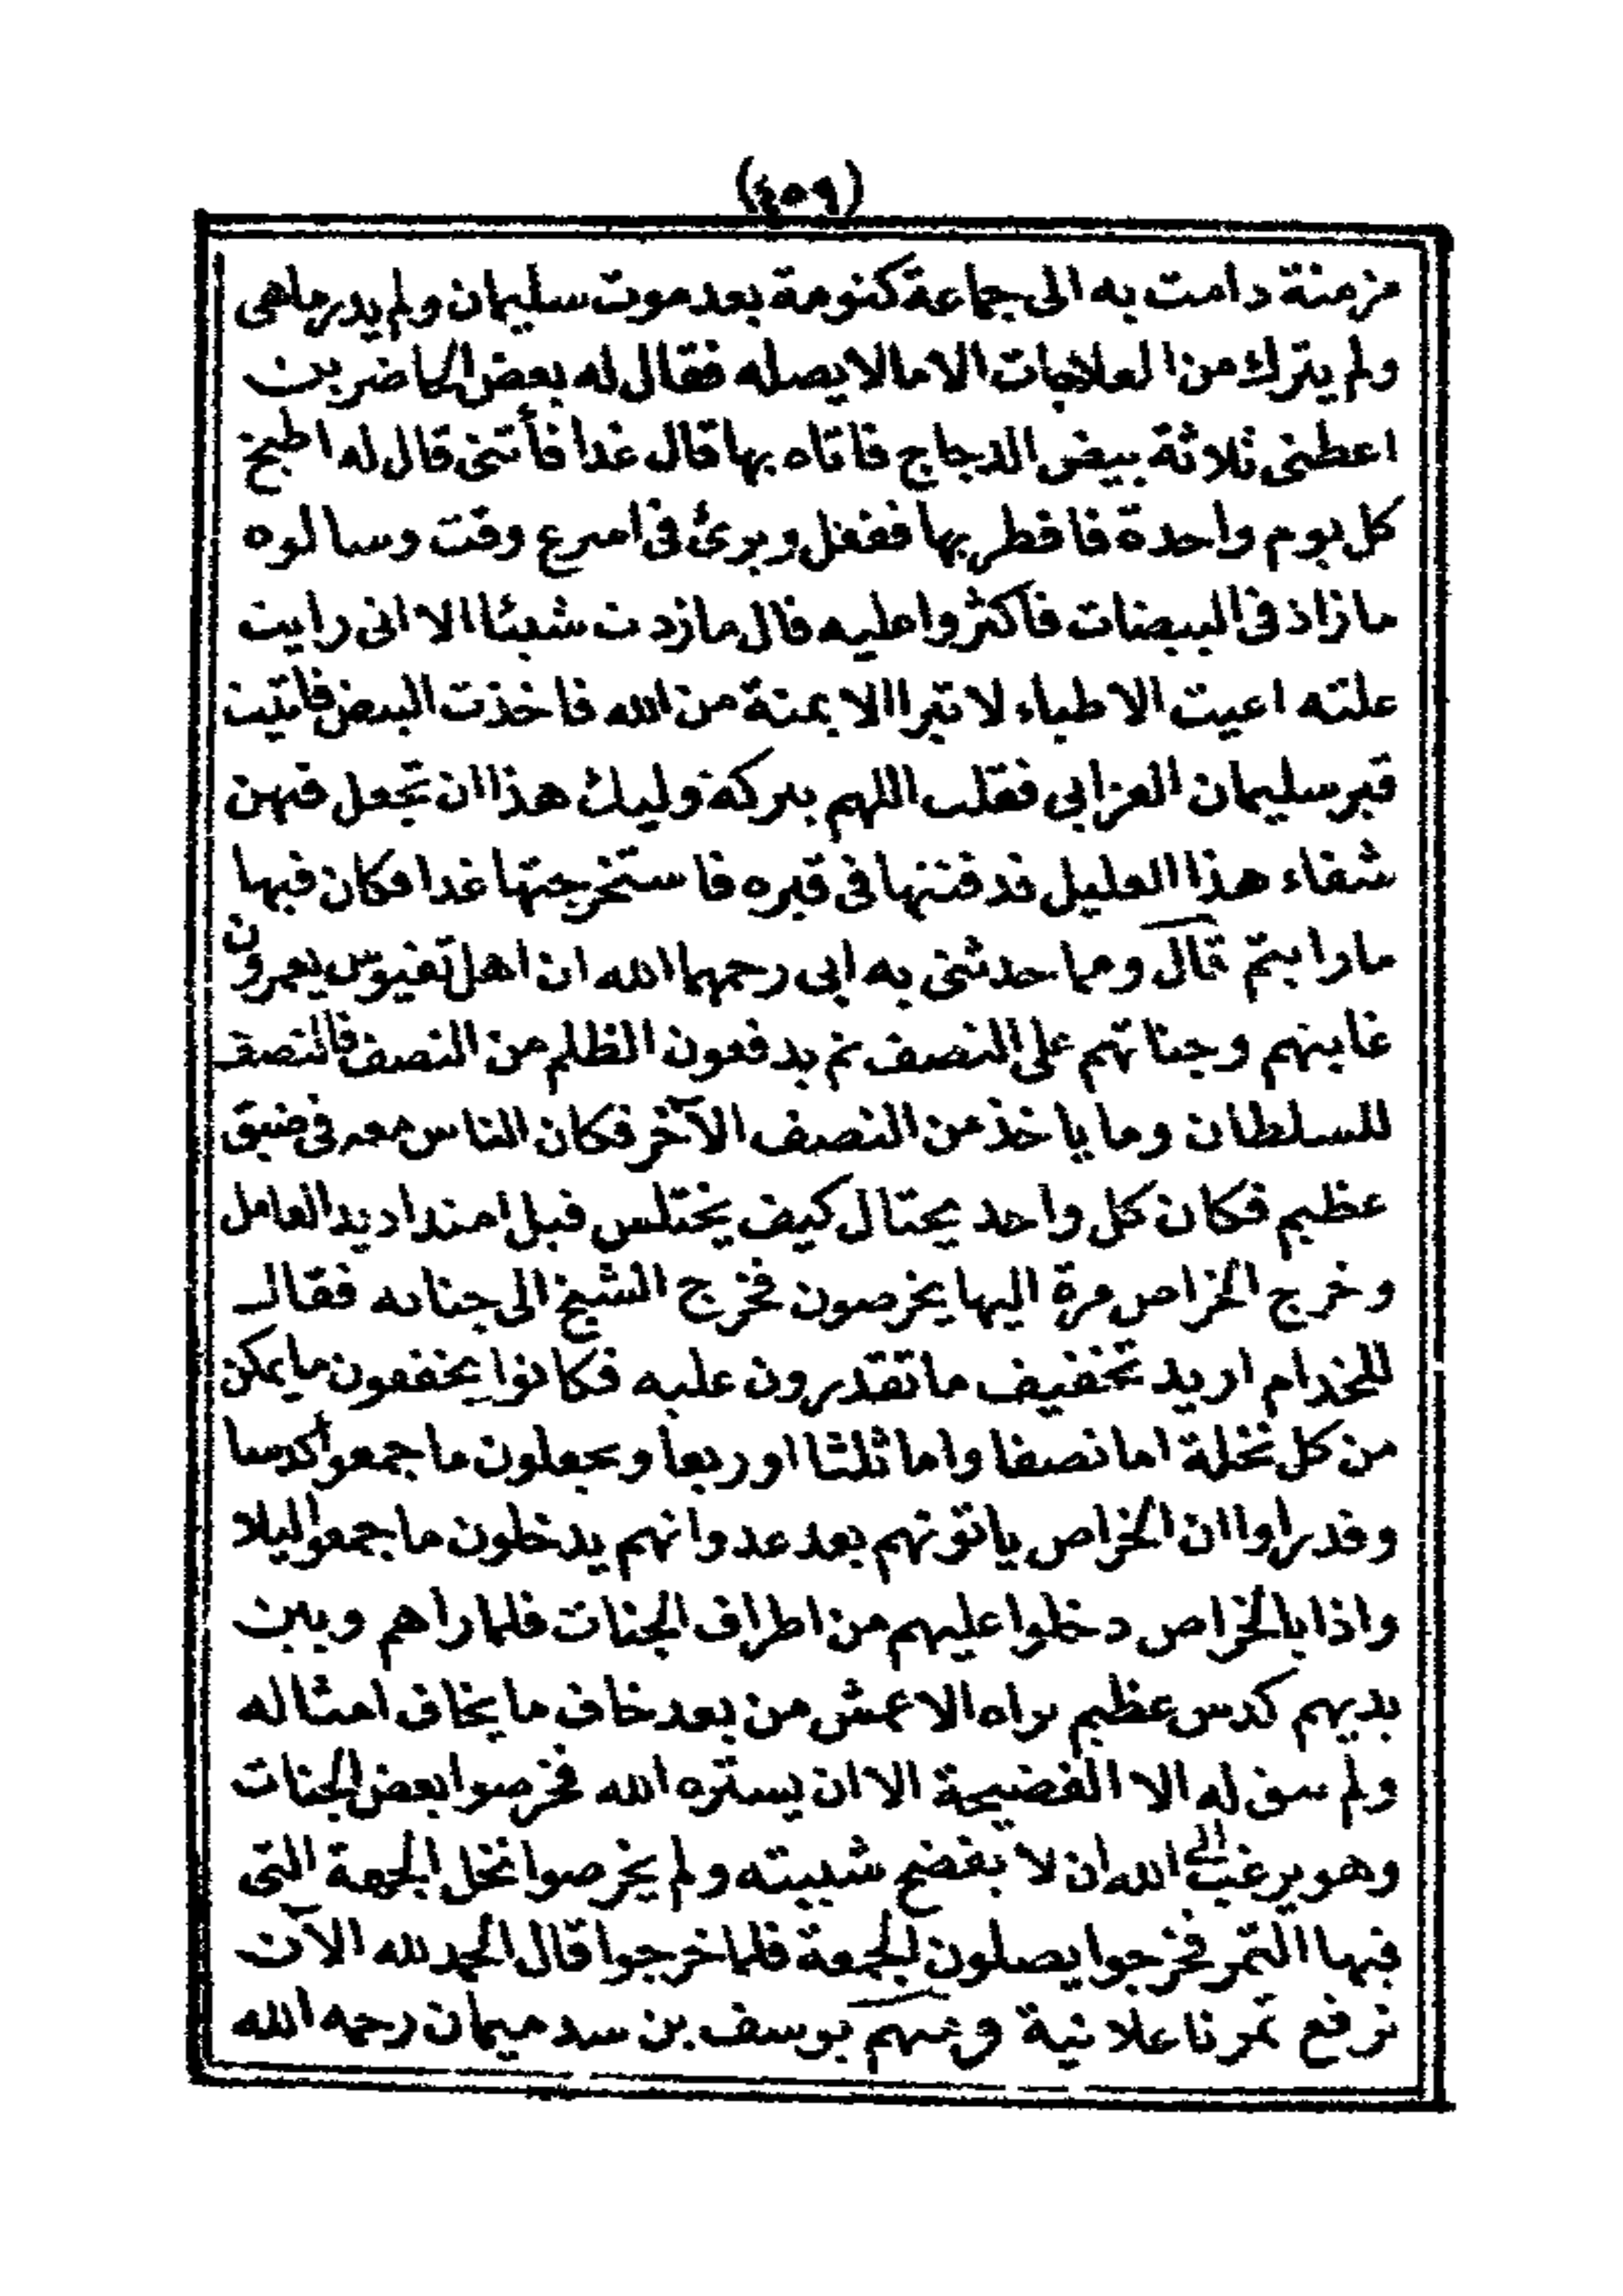 (٤٥٩)
مزمنة دامت به الى جماعة كنومة بعد موت سليمان ولم يدر ماهى
ولم يترك من العلاجات الا ما لا يصله فقال له بعض الحاضرين
اعطنى ثلاثة بيض الدجاج فاتاه بها قال غدا فأتنى قال له اطبخ
كل يوم واحدة فافطر بها ففعل وبرئ فى اسرع وقت وسالوه
ما زاد فى البيضات فاكثروا عليه قال ما زدت شيئا الا انى رايت
علته اعيت الاطباء لا تبرا الا بمنة من الله فاخذت البيض فاتيت
قبر سليمان العزابى فقلت اللهم ببركة وليك هذا ان تجعل فيهن
شفاء هذا العليل فدفنتها فى قبره فاستخرجتها غدا فكان فيها
ما رايتم قال ومما حدثنى به ابى رحمهما الله ان اهل تقيوس يعمرون
غابنهم وجناتهم على النصف ثم يدفعون الظلم من النصف فالنصف
للسلطان وما ياخذ من النصف الآخر فكان الناس معه فى ضيق
عظيم فكان كل واحد يحتال كيف يختلس قبل امتداد يد العامل
وخرج الخراص مرة اليها يخرصون فخرج الشيخ الى جنانه فقال
للخدام اريد تخفيف ما تقدرون عليه فكانوا يخففون ما يمكن
من كل نخلة اما نصفا واما ثلثا او ربعا ويجعلون ما جمعوا كدسا
وقدراوا ان الخراص ياتونهم بعد غد وانهم يدخلون ما جمعوا ليلا
واذا بالخراص دخلوا عليهم من اطراف الجنات فلما راهم وبين
يديهم كدس عظيم يراه الاعمش من بعد خاف ما يخاف امثاله
ولم يبق له الا الفضيحة الا ان يستره الله فخرصوا بعض الجنات
وهو يرغب الى الله ان لا يفضح شيبته ولم يخرصوا نخل الجهة التى
فيها التمر فخرجوا يصلون الجمعة فلما خرجوا قال الحمد لله الآن
نرفع تمرنا علانية ومنهم يوسف بن سدميمان رحمه الله